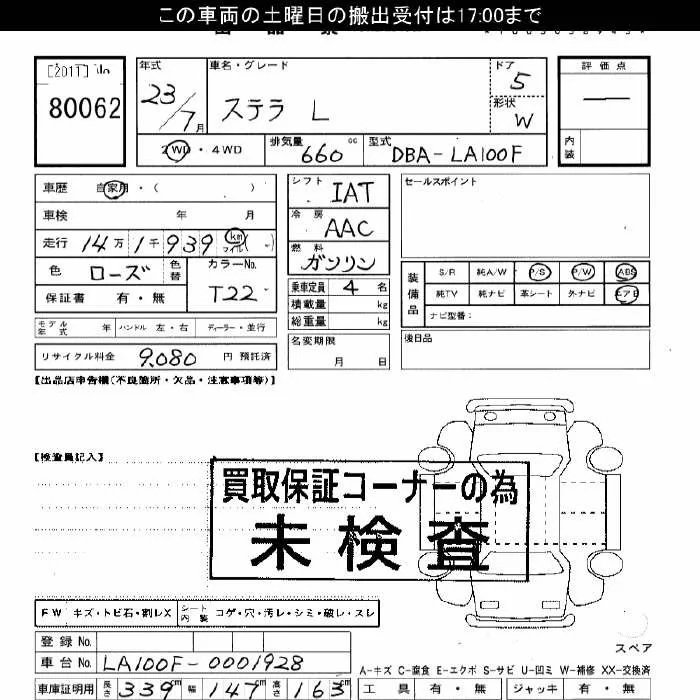 この車両の土曜日の搬出受付は17:00まで
[2011] No
80062
年式
23/7月
車名・グレード
ステラ L
ドア
5
形状
W
評価点
—
内装
2WD・4WD
排気量
660cc
型式
DBA-LA100F
車歴 自家用・( )
車検 年 月
走行 14万1千939 km マイル( )
色 ローズ 色替
カラーNo.
T22
保証書 有・無
モデル年式 年 ハンドル 左・右 ディーラー・並行
リサイクル料金 9,080 円 預託済
シフト IAT
冷房 AAC
燃料 ガソリン
乗車定員 4 名
積載量 kg
総重量 kg
名変期限
月 日
セールスポイント
装備品
S/R 純A/W P/S P/W ABS
純TV 純ナビ 革シート 外ナビ エアB
ナビ型番:
後日品
【出品店申告欄(不良箇所・欠品・注意事項等)】
【検査員記入】
買取保証コーナーの為
未検査
FW キズ・トビ石・割レX
シート内装 コゲ・穴・汚レ・シミ・破レ・スレ
スペア
登録No.
車台No. LA100F-0001928
車庫証明用 長さ 339cm 幅 147cm 高さ 163cm
A-キズ C-腐食 E-エクボ S-サビ U-凹ミ W-補修 XX-交換済
工具 有・無 ジャッキ 有・無